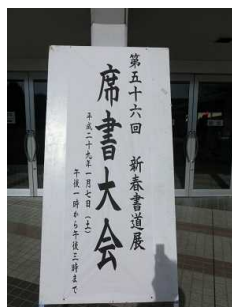 第五十六回 新春書道展
席書大会
平成二十九年一月七日（土）
午後一時から午後三時まで